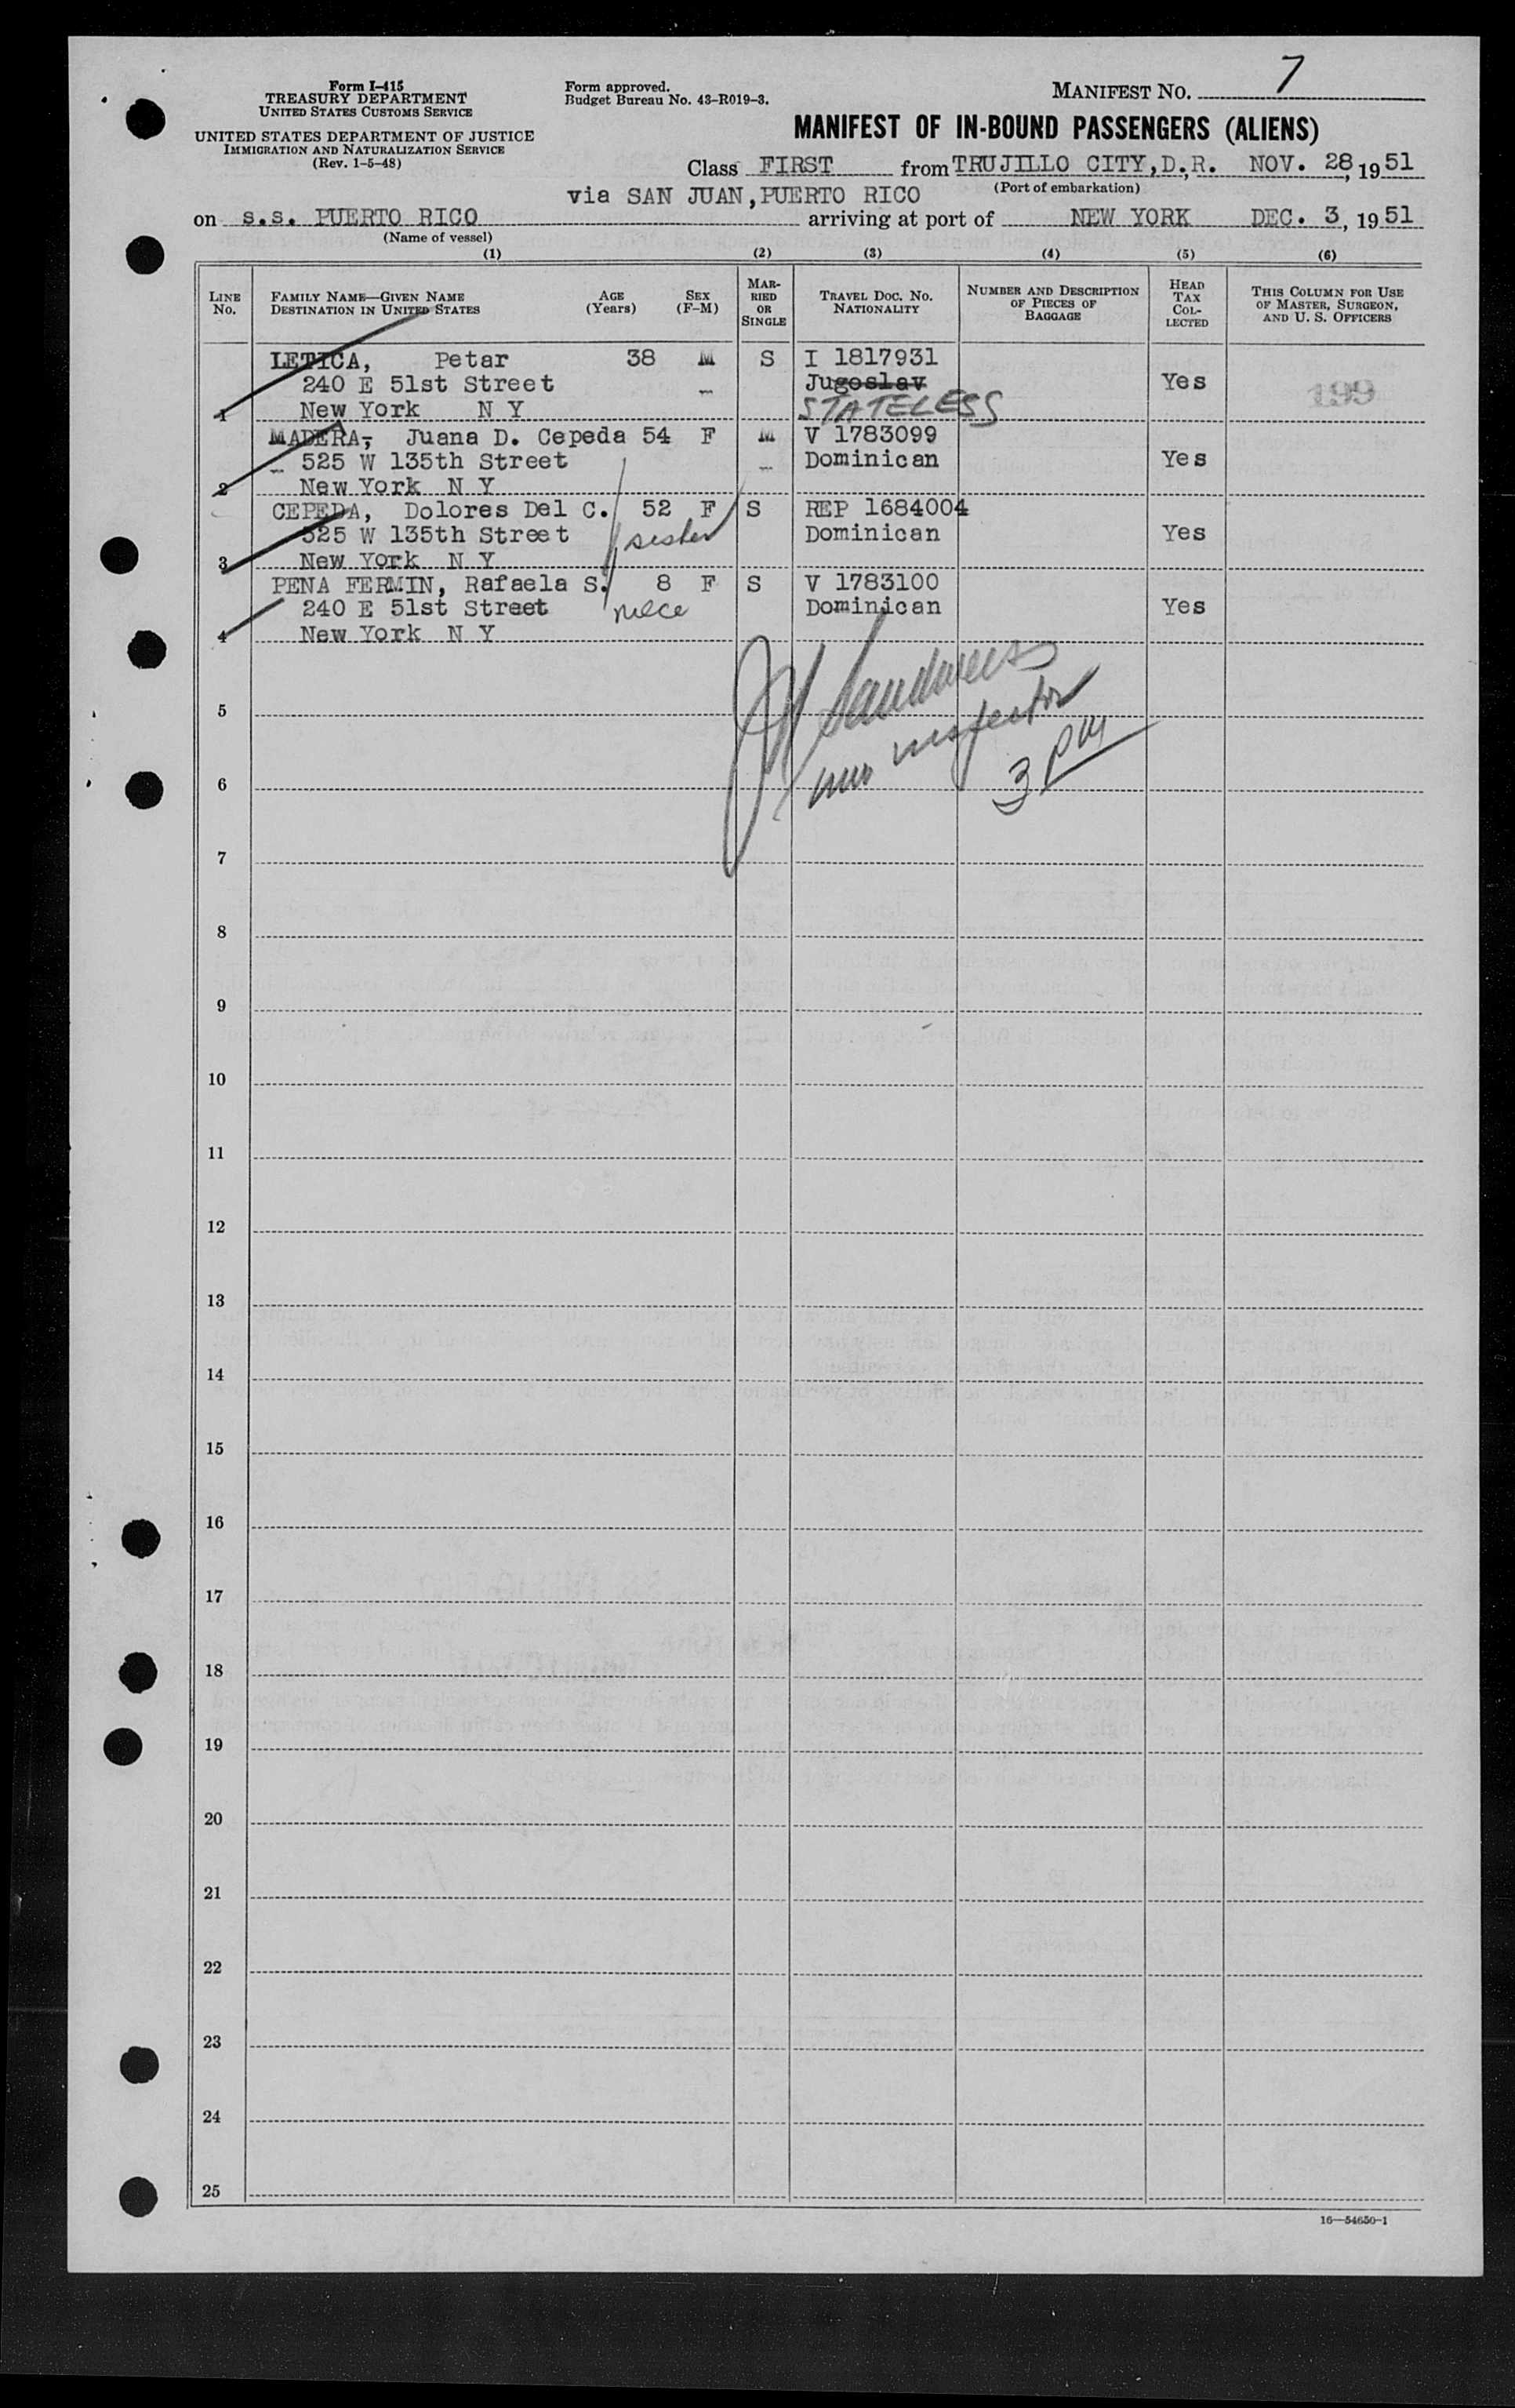 Form I-415
TREASURY DEPARTMENT
UNITED STATES CUSTOMS SERVICE
UNITED STATES DEPARTMENT OF JUSTICE
IMMIGRATION AND NATURALIZATION SERVICE
(Rev. 1-5-48)
Form approved.
Budget Bureau No. 43-R019-3.
MANIFEST NO. 7
MANIFEST OF IN-BOUND PASSENGERS (ALIENS)
Class FIRST from TRUJILLO CITY, D.R. NOV. 28, 1951
(Port of embarkation)
via SAN JUAN, PUERTO RICO
on S.S. PUERTO RICO arriving at port of NEW YORK DEC. 3, 1951
(Name of vessel)
(1) (2) (3) (4) (5) (6)
LINE NO. FAMILY NAME—GIVEN NAME DESTINATION IN UNITED STATES AGE (Years) SEX (F-M) MARRIED OR SINGLE TRAVEL DOC. NO. NATIONALITY NUMBER AND DESCRIPTION OF PIECES OF BAGGAGE HEAD TAX COLLECTED THIS COLUMN FOR USE OF MASTER, SURGEON, AND U. S. OFFICERS
LETICA, Petar 38 M S I 1817931
240 E 51st Street Jugoslav Yes 199
1 New York N Y STATELESS
MADERA, Juana D. Cepeda 54 F M V 1783099
525 W 135th Street Dominican Yes
2 New York N Y
CEPEDA, Dolores Del C. 52 F S REP 1684004
525 W 135th Street sister Dominican Yes
3 New York N Y
PENA FERMIN, Rafaela S. 8 F S V 1783100
240 E 51st Street niece Dominican Yes
4 New York N Y
inspector
3 PM
5
6
7
8
9
10
11
12
13
14
15
16
17
18
19
20
21
22
23
24
25
16—54650-1